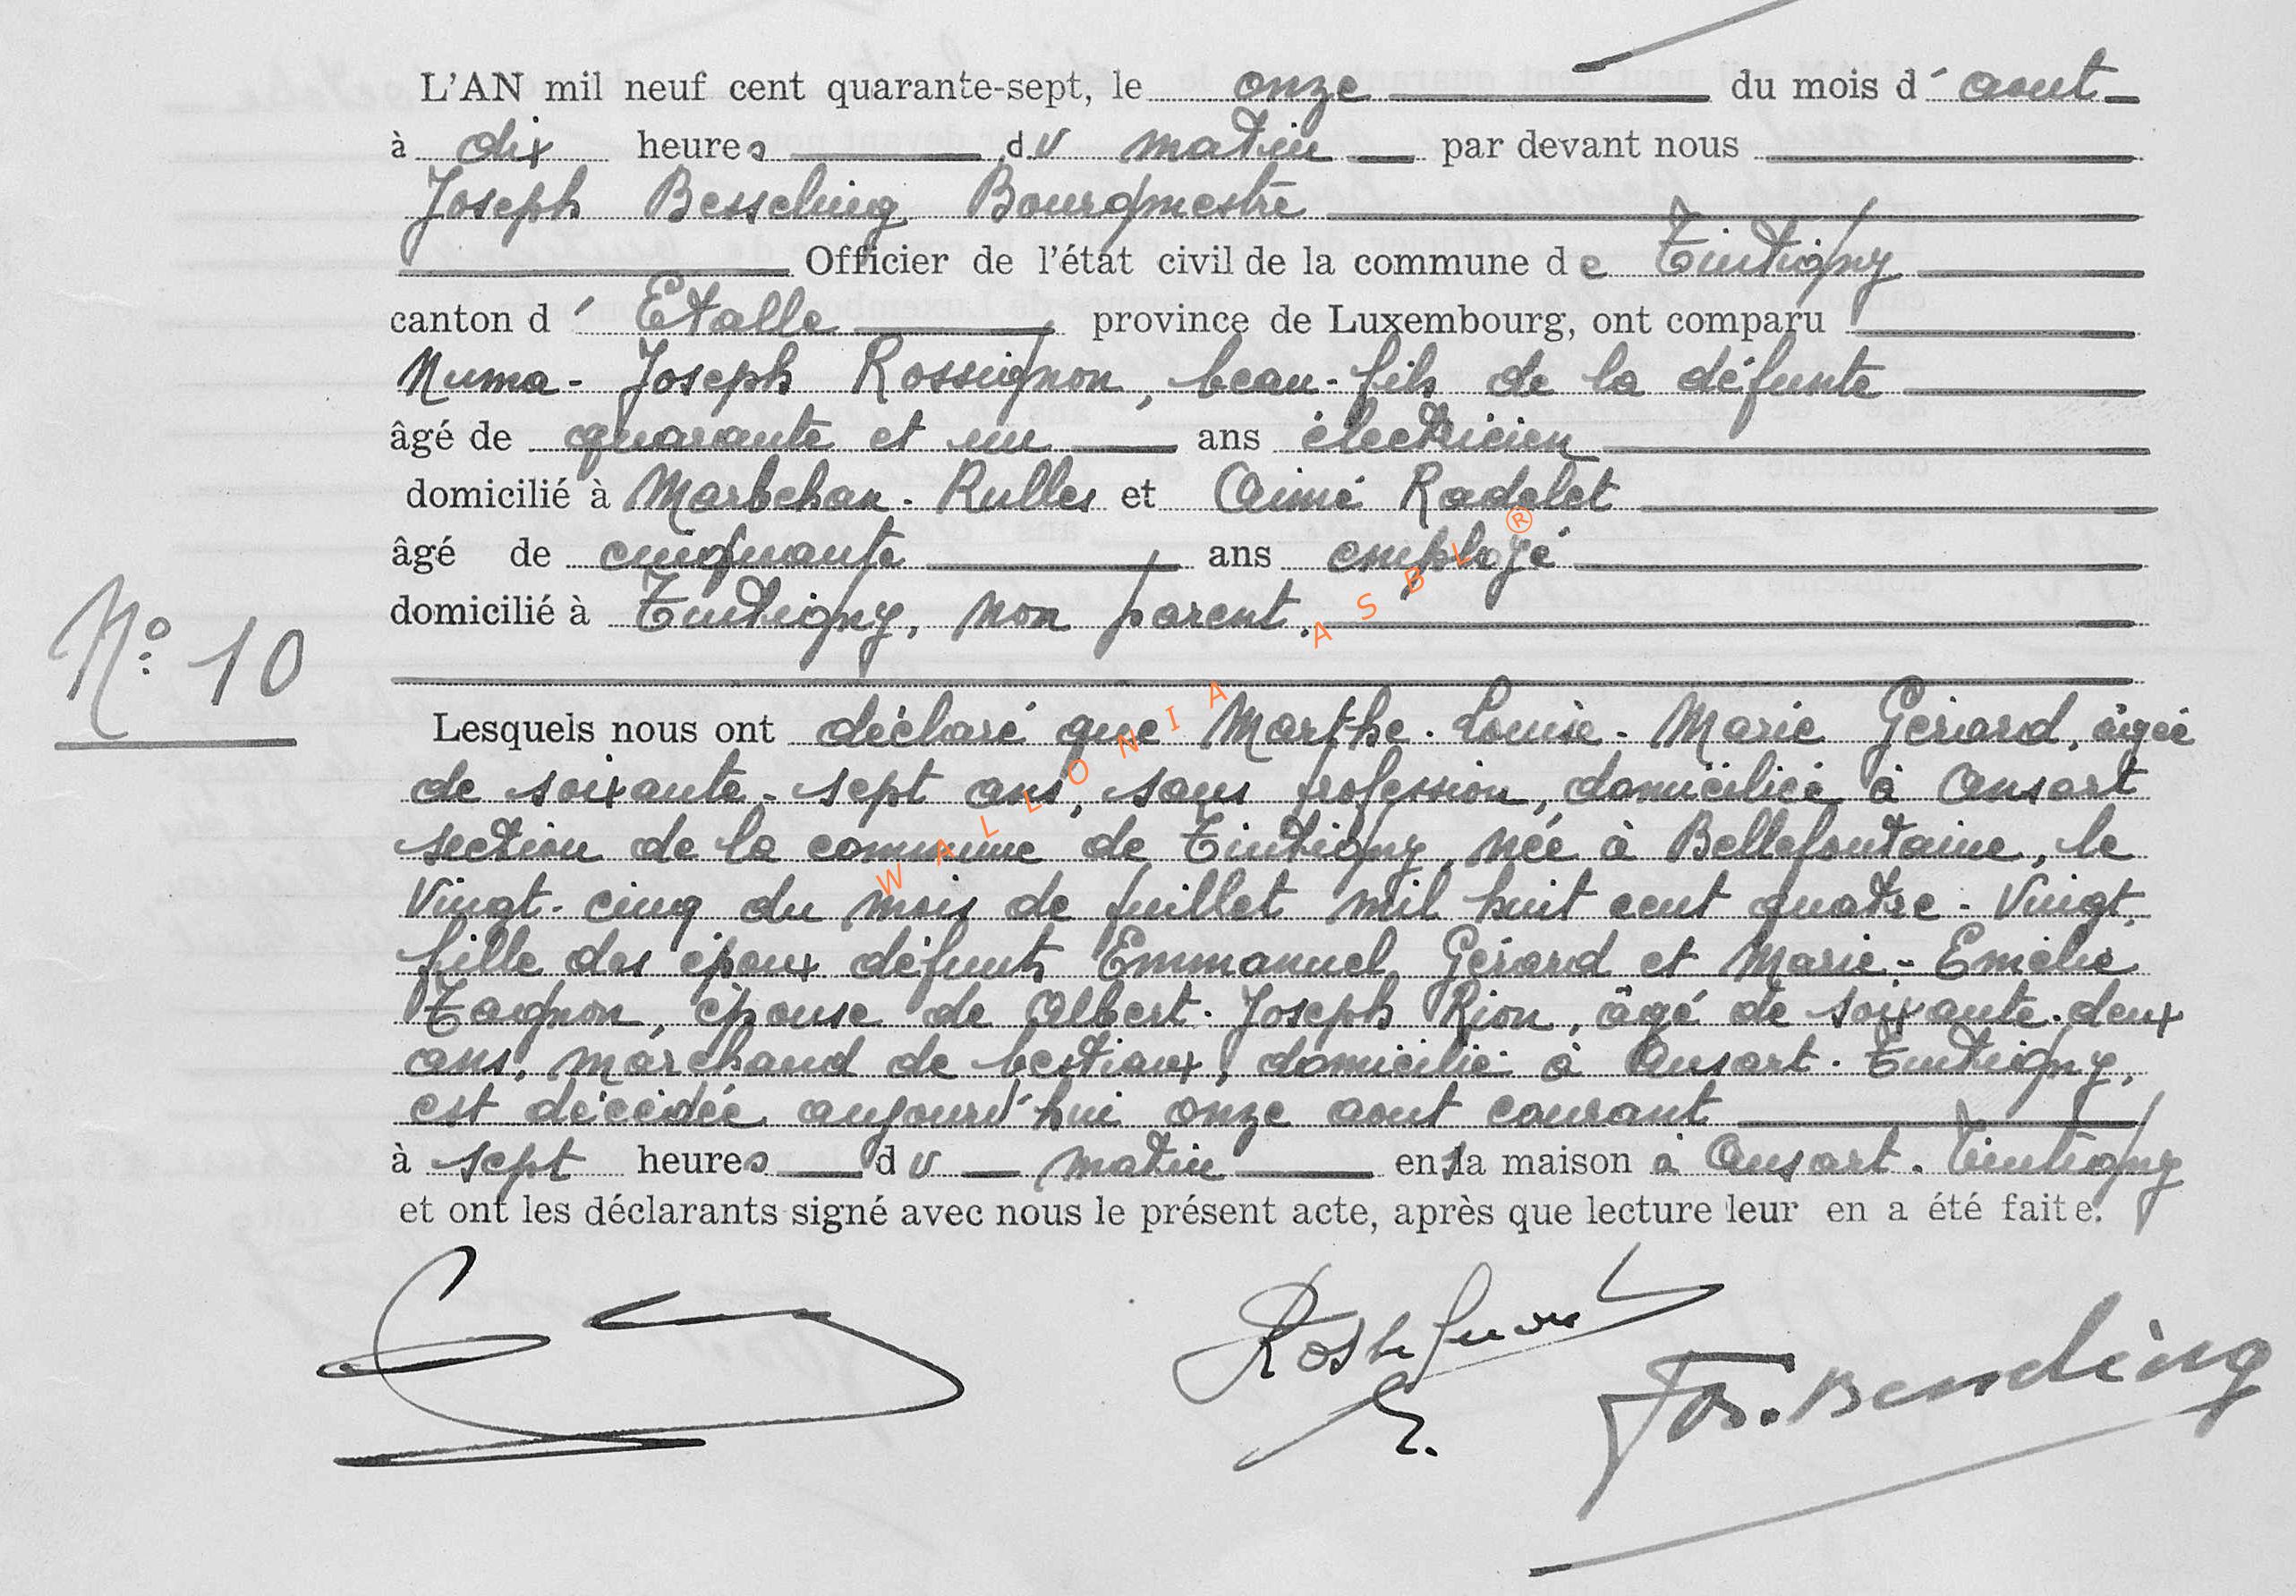 L'AN mil neuf cent quarante-sept, le onze du mois d' aout
à dix heures du matin par devant nous
Joseph Bessling Bourgmestre
Officier de l'état civil de la commune de Tintigny
canton d' Etalle province de Luxembourg, ont comparu
Numa-Joseph Rossignon, beau-fils de la défunte
âgé de quarante et un ans électricien
domicilié à Marbehan-Rulles et Aimé Radelet
âgé de cinquante ans employé
domicilié à Tintigny, non parent.
N° 10
Lesquels nous ont déclaré que Marthe-Louise-Marie Gérard, âgée
de soixante-sept ans, sans profession, domiciliée à Ansart
section de la commune de Tintigny, née à Bellefontaine, le
vingt-cinq du mois de juillet mil huit cent quatre-vingt,
fille des époux défunts Emmanuel Gérard et Marie-Emélie
Taignon, épouse de Albert-Joseph Rion, âgé de soixante-deux
ans, marchand de bestiaux, domicilié à Ansart-Tintigny,
est décédée aujourd'hui onze aout courant
à sept heures du matin en sa maison à Ansart-Tintigny
et ont les déclarants signé avec nous le présent acte, après que lecture leur en a été faite.
Jos. Bessling
WALLONIA ASBL ®